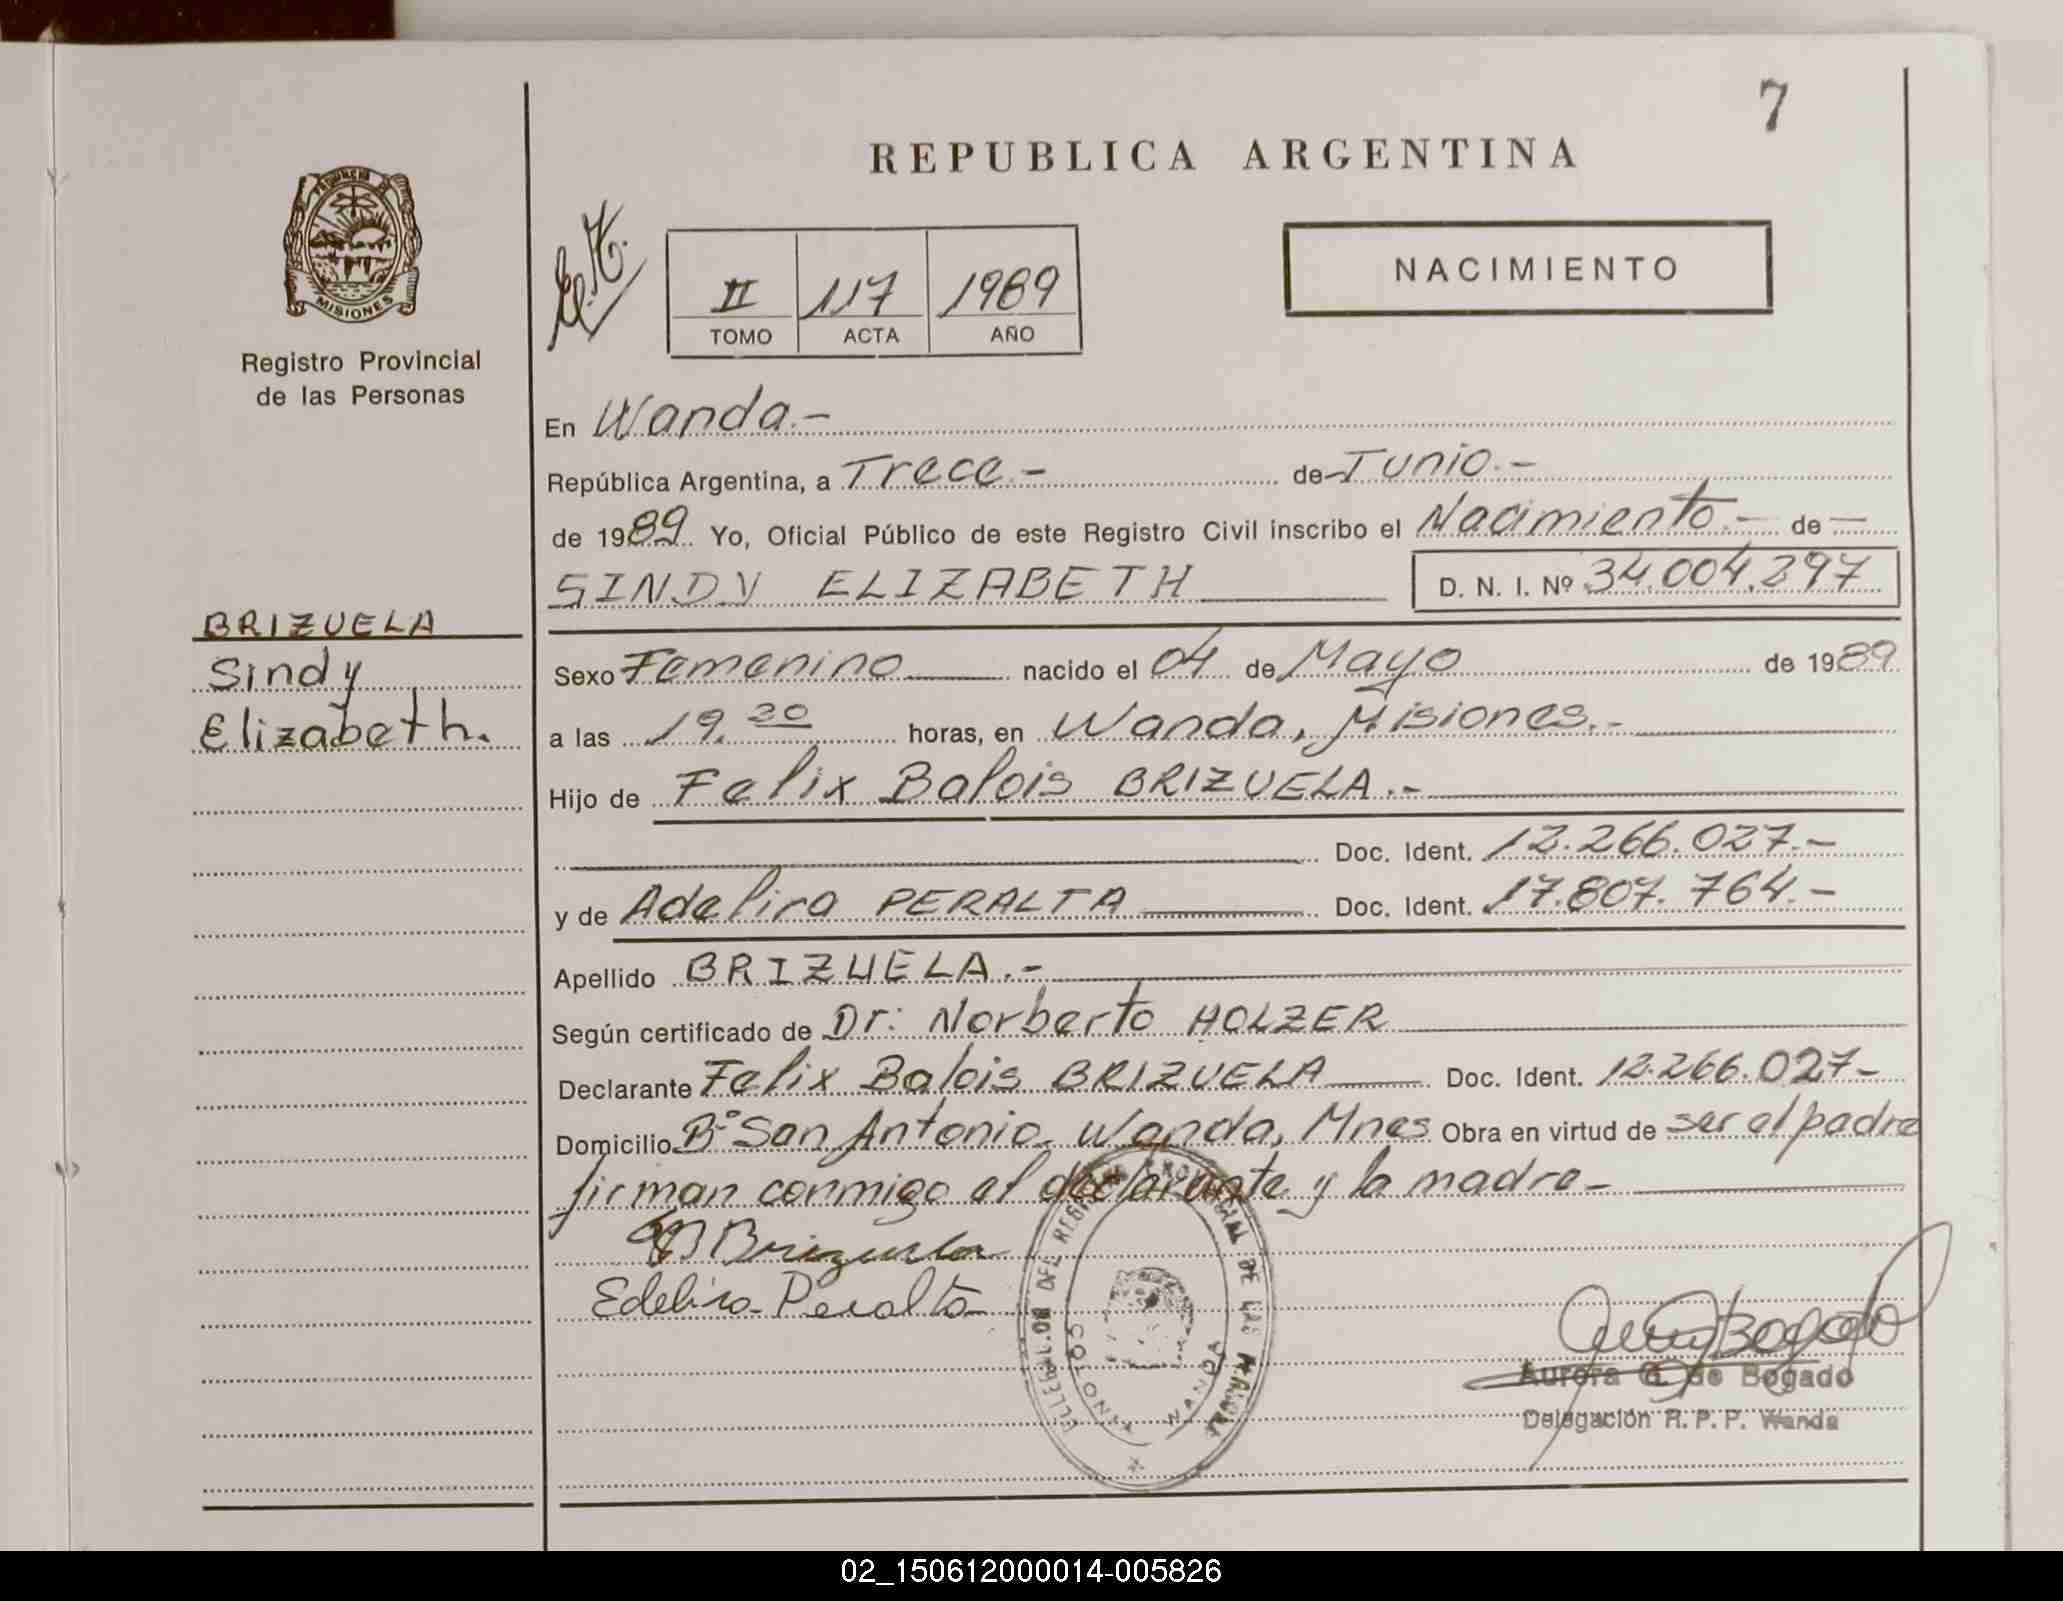 7
REPUBLICA ARGENTINA
PROVINCIA DE
MISIONES
Registro Provincial
de las Personas
II 117 1989
TOMO ACTA AÑO
NACIMIENTO
En Wanda.-
República Argentina, a Trece.- de Junio.-
de 1989 Yo, Oficial Público de este Registro Civil inscribo el Nacimiento.- de —
SINDY ELIZABETH D. N. I. Nº 34.004.297
BRIZUELA
Sindy
Elizabeth.
Sexo Femenino nacido el 04 de Mayo de 1989
a las 19,20 horas, en Wanda, Misiones.-
Hijo de Felix Balois BRIZUELA.-
Doc. Ident. 12.266.027.-
y de Adelira PERALTA Doc. Ident. 17.807.764.-
Apellido BRIZUELA.-
Según certificado de Dr: Norberto HOLZER
Declarante Felix Balois BRIZUELA Doc. Ident. 12.266.027-
Domicilio Bº San Antonio, Wanda, Mnes Obra en virtud de ser el padre
firman conmigo el declarante y la madre-
Brizuela
Edelira Peralta
REGISTRO PROVINCIAL DE LAS PERSONAS
WANDA
Bogado
Aurora G. de Bogado
Delegación R. P. P. Wanda
02_150612000014-005826